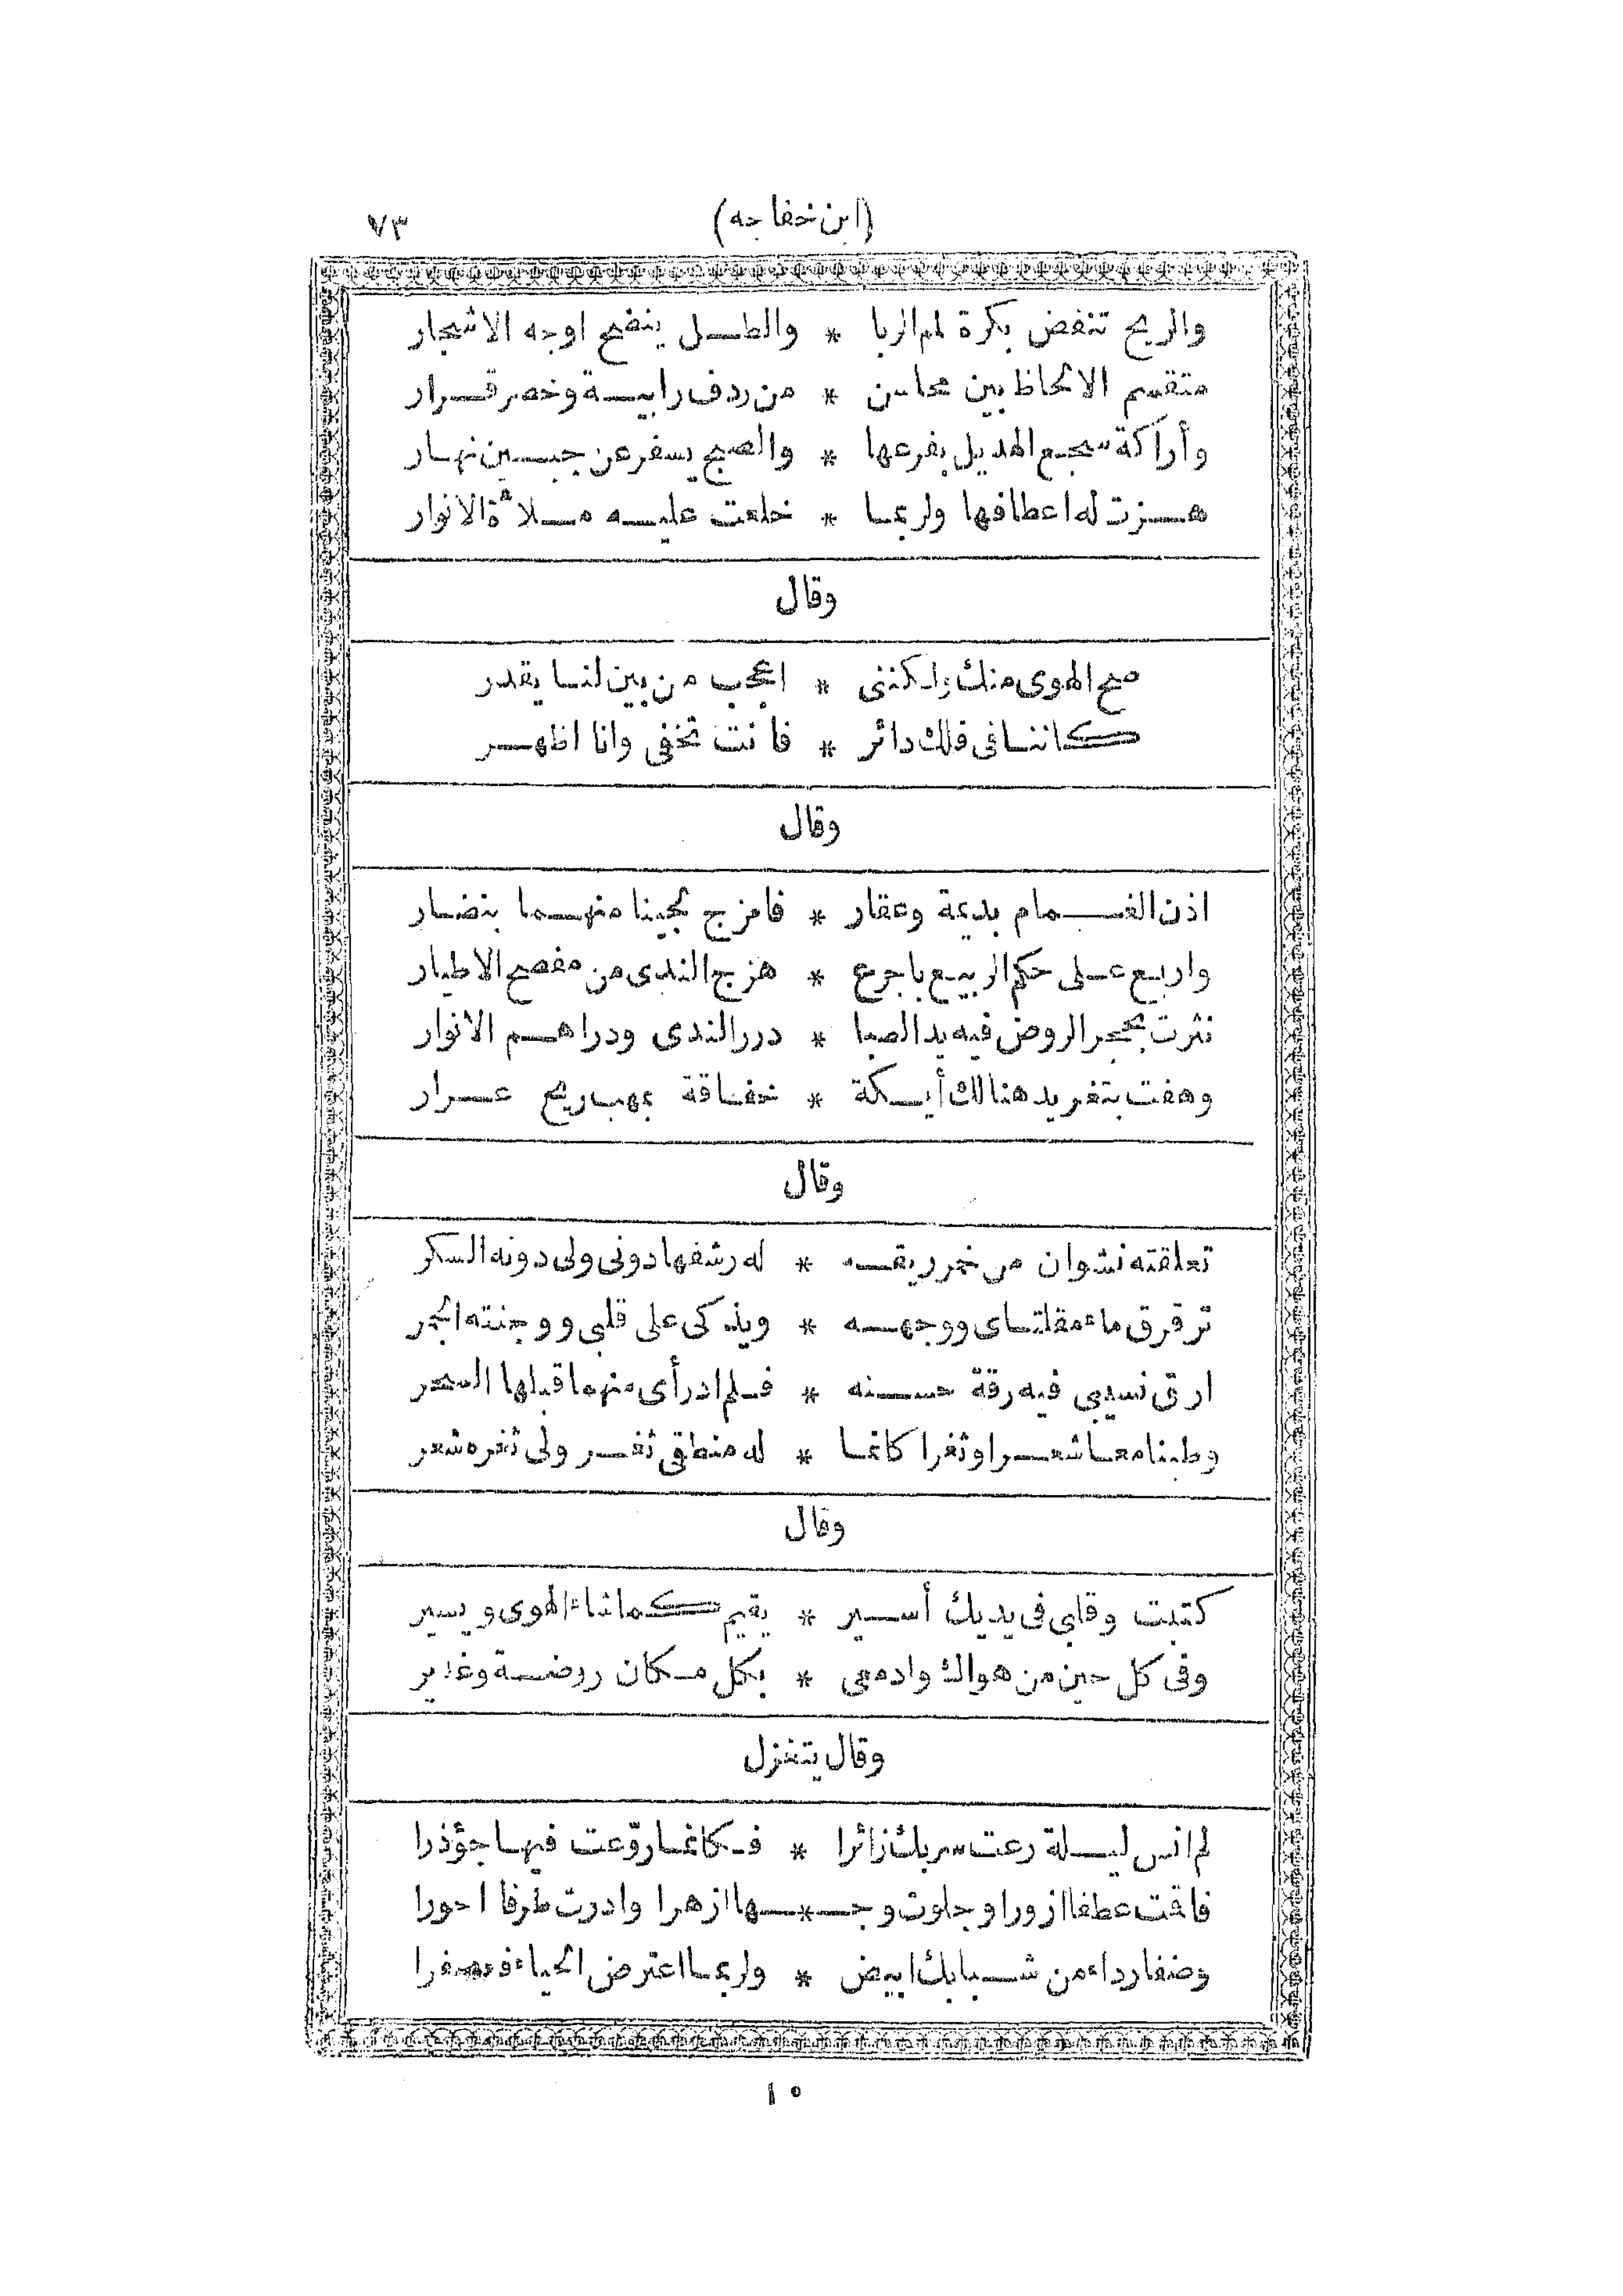 (ابن خفاجه) ٧٣
والريح تنفض بكرة لمم الربا * والطل ينضح اوجه الاشجار
متقسم الالحاظ بين محاسن * من ردف رابية وخصر قرار
وأراكة سجع الهديل بفرعها * والصبح يسفر عن جبين نهار
هزت له اعطافها ولربما * خلعت عليه ملاءة الانوار
وقال
صح الهوى منك ولكننى * اعجب من بين لنا يقدر
كاننا فى فلك دائر * فانت تخفى وانا اظهر
وقال
اذن الغمام بديمة وعقار * فامزج لجينا منهما بنضار
واربع على حكم الربيع باجرع * هزج الندى من مفصح الاطيار
نثرت بحجر الروض فيه يد الصبا * درر الندى ودراهم الانوار
وهفت بتغريد هنالك أيكة * خفاقة بمهب ريح عرار
وقال
تعلقته نشوان من خمر ريقه * له رشفها دونى ولى دونه السكر
ترقرق ماء مقلتاى ووجهه * ويذكى على قلبى ووجنته الجمر
ارق نسيبى فيه رقة حسنه * فلم ادر أى منهما قبلها السحر
وطبنا معا شعرا وثغرا كانما * له منطقى ثغر ولى ثغره شعر
وقال
كتبت وقلبى فى يديك أسير * يقيم كما شاء الهوى ويسير
وفى كل حين من هواك وادمعى * بكل مكان روضة وغدير
وقال يتغزل
لم انس ليلة رعت سربك زائرا * فكانما روّعت فيها جؤذرا
فاقت عطفا ازورا وجلوت وجـ * ـها ازهرا وادرت طرفا احورا
وضفا رداء من شبابك ابيض * ولربما اعترض الحياء فعصفرا
١٠